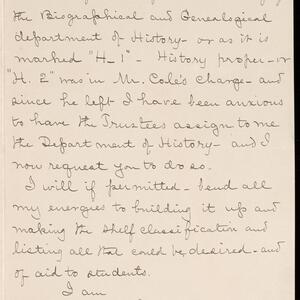 the Biographical and Genealogical
department of History - or as it is
marked "H-1" - History proper - or
"H. 2" was in Mr. Cole's charge - and
since he left I have been anxious
to have the Trustees assign to me
the Department of History - and I
now request you to do so.
I will if permitted - bend all
my energies to building it up and
making the shelf classification and
listing all that could be desired - and
of aid to students.
I am